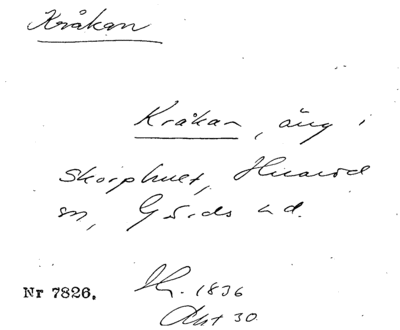 Kråkan
Kråkan, äng i
Skorphult, Huaröd
sn, Gärds hd.
Nr 7826. Sk. 1836
Akt 30